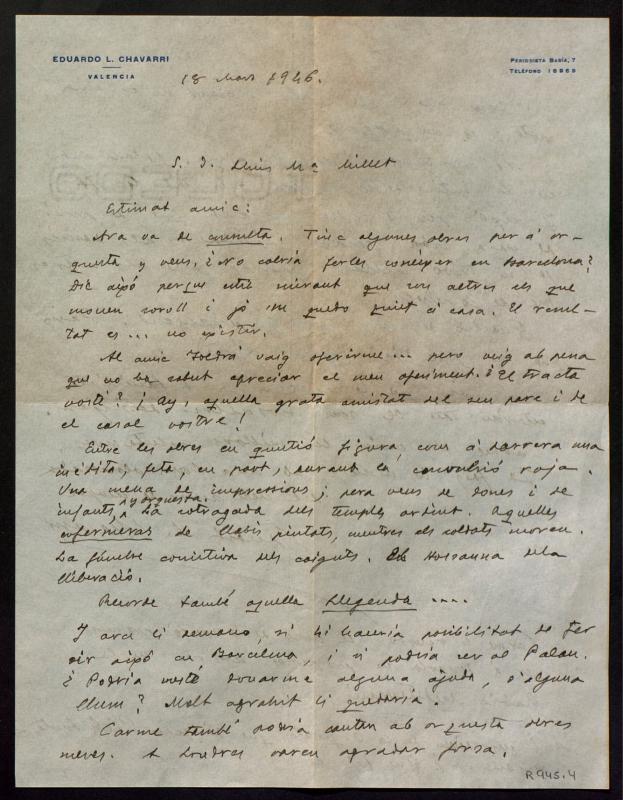 EDUARDO L. CHAVARRI
VALENCIA
PERIODISTA BADÍA, 7
TELÉFONO 18969
18 Mars 1946.
S. D. Lluis Mª Millet
Estimat amic:
Ara va de consulta. Tinc algunes obres per á or-
questa y veus. ¿No cabria ferles coneixer en Barcelona?
Dic aixó perque estic mirant que son altres els que
mouen soroll i jo 'm quedo quiet á casa. El resul-
tat es... no existir.
Al amic Toldrá vaig oferirme... pero veig ab pena
que no ha sabut apreciar el meu oferiment. ¿El tracta
vosté? ¡Ay, aquella grata amistat del seu pare i de
el casal vostre!
Entre les obres en questió figura, com á darrera una
inédita, feta, en part, durant la convulsió roja.
Una mena de impressions; pera veus de dones i de
infants, y orquesta. La sotragada dels temples ardint. Aquelles
enfermeras de llabis pintats, mentres els soldats moren.
La fúnebre comitiva dels caiguts. El Hossanna de la
lliberació.
Recorde també aquella Llegenda ....
I ara li demano, si hi hauria posibilitat de fer
oir aixó en Barcelona, i si podria ser al Palau.
¿Podria vosté donarme alguna ajuda, o alguna
llum? Molt agrahit li quedaria.
Carme també podria cantar ab orquesta obres
meves. A Londres varen agradar força.
R 945.4